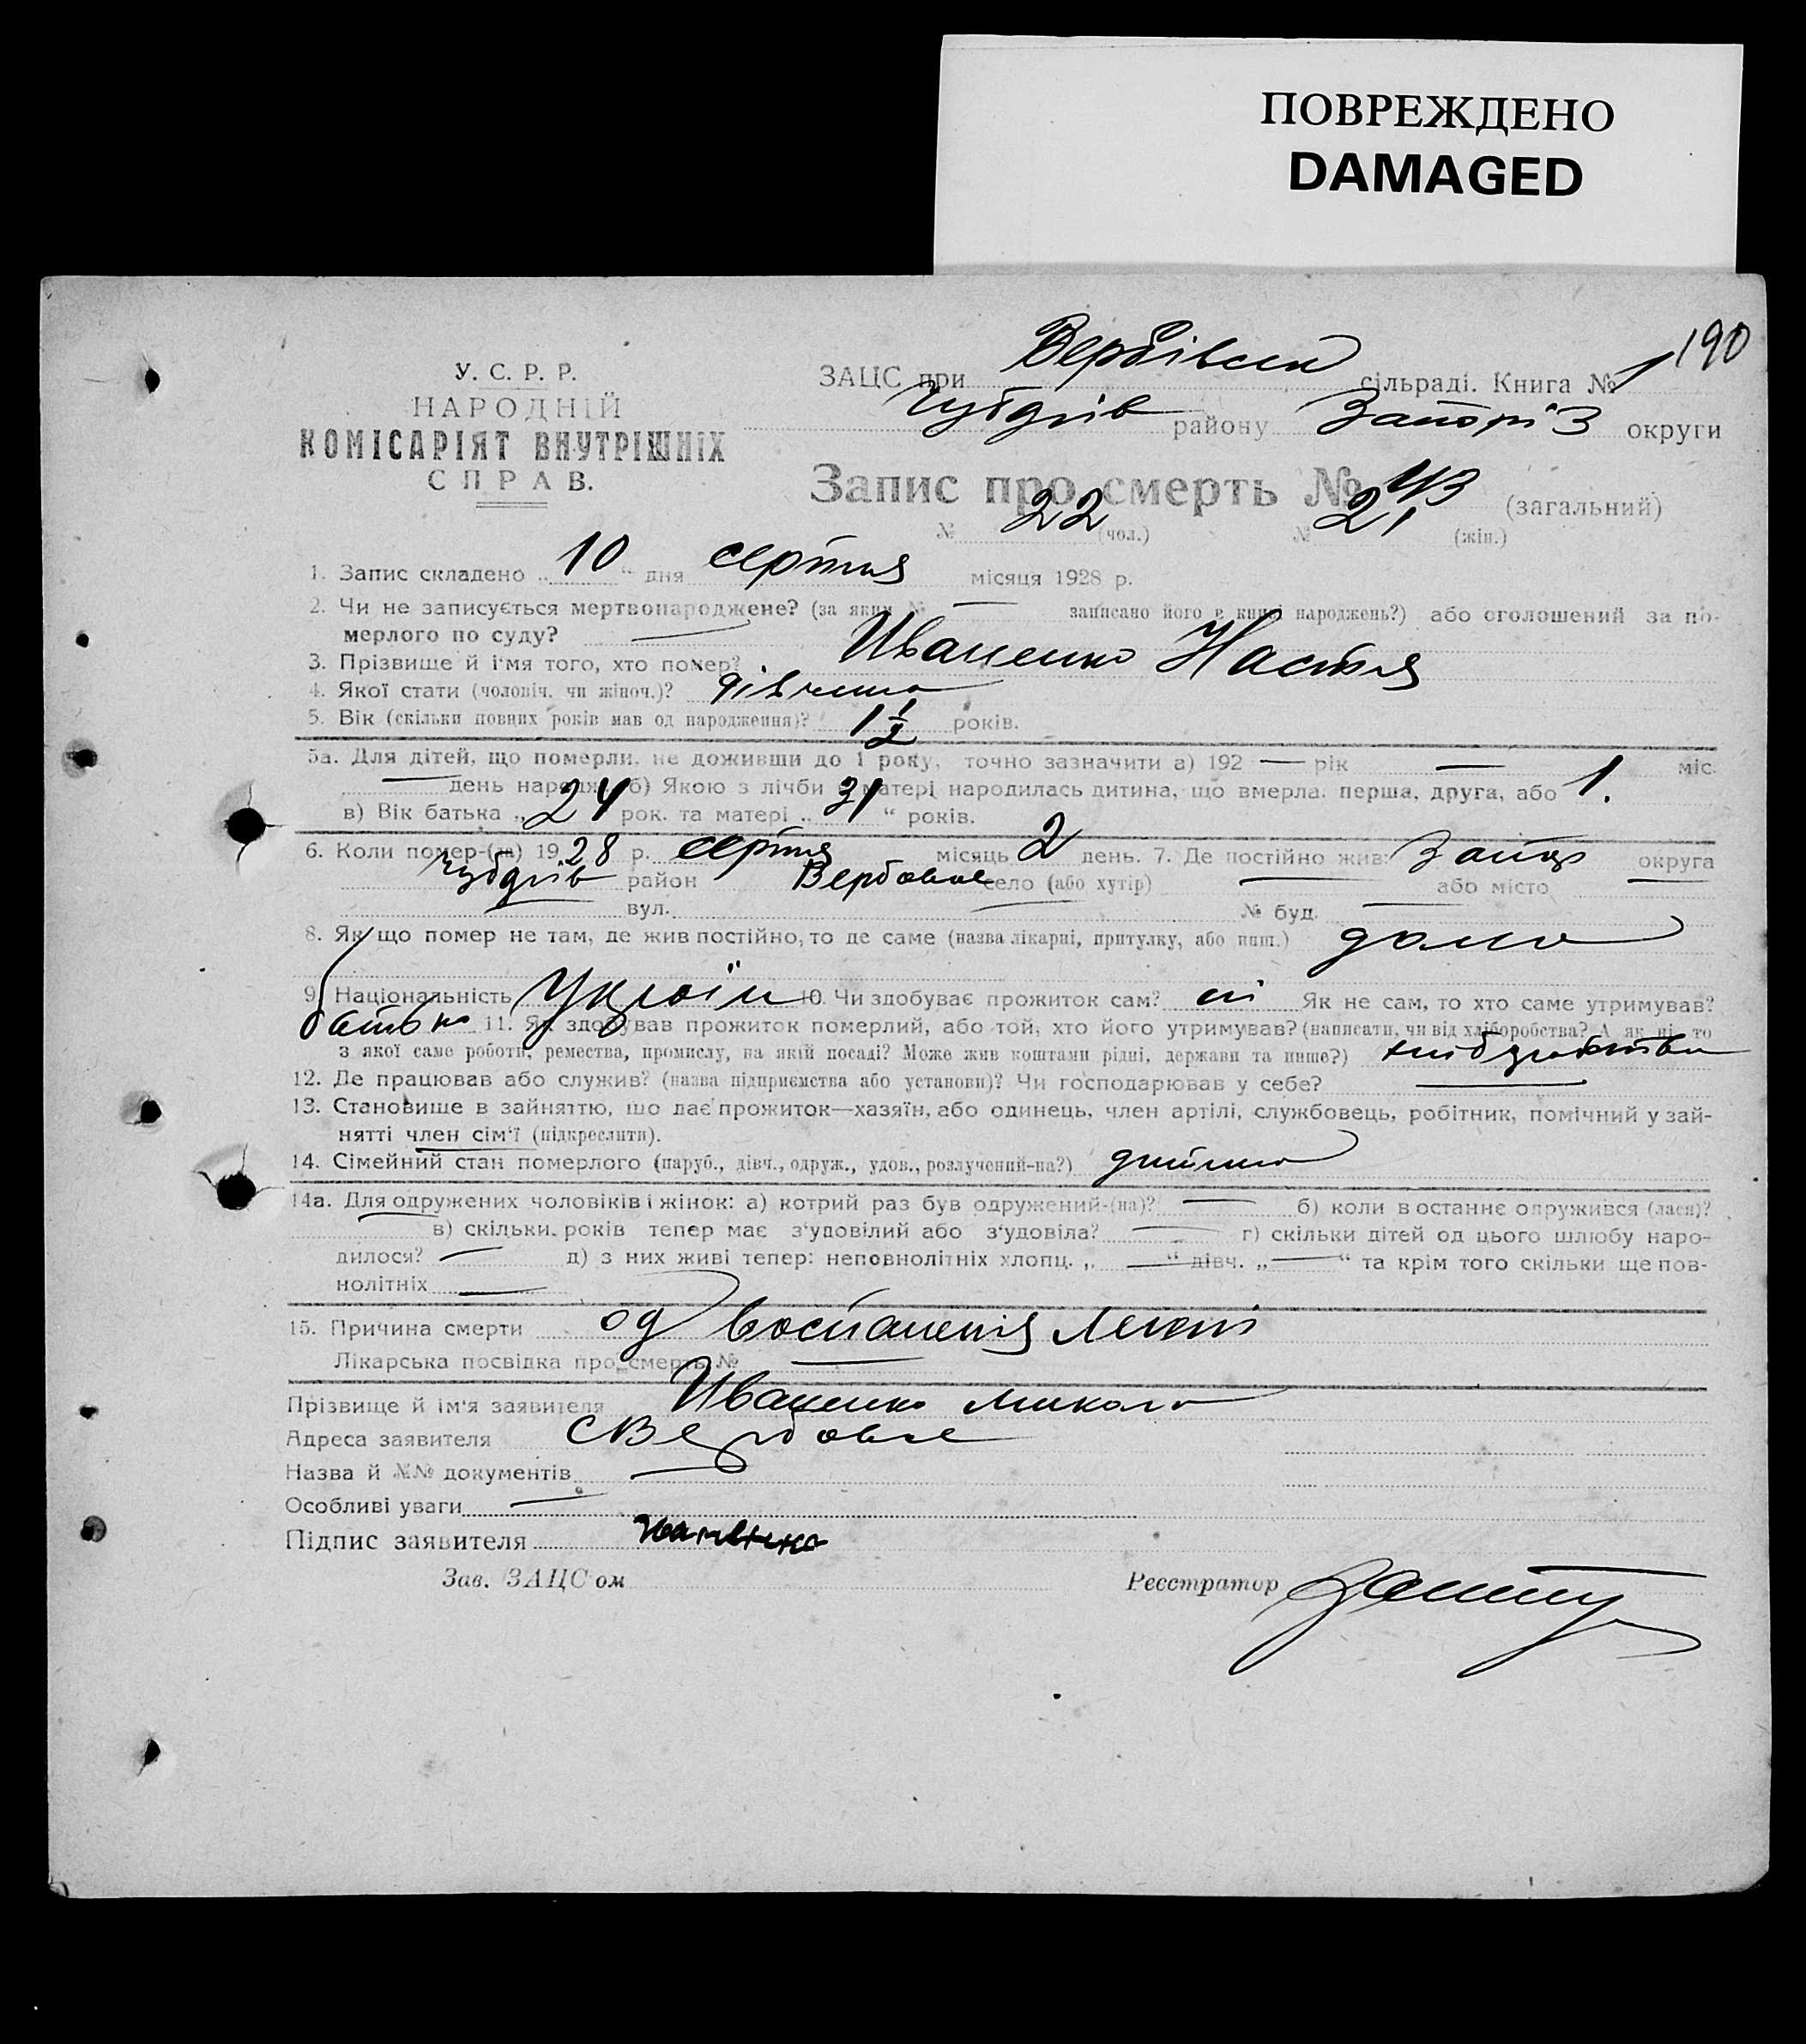 ПОВРЕЖДЕНО
DAMAGED
190
У. С. Р. Р.
НАРОДНІЙ
КОМІСАРІЯТ ВНУТРІШНІХ
СПРАВ.
ЗАЦС при Вербівськ сільраді. Книга № 1
району Запоріз округи
Запис про смерть № 43 (загальний)
№ 22 (чол.) № 21 (жін.)
1. Запис складено „ 10 “ дня серпня місяця 1928 р.
2. Чи не записується мертвонароджене? (за яким № — записано його в книзі народжень?) або оголошений за по-
мерлого по суду? —
3. Прізвище й ім'я того, хто помер? Иваненко Настя
4. Якої стати (чоловіч. чи жіноч.)? дівчина
5. Вік (скільки повних років мав од народження)? 1 1/2 років.
5а. Для дітей, що померли, не доживши до 1 року, точно зазначити а) 192 — рік — міс.
— день народж. б) Якою з лічби в матері народилась дитина, що вмерла: перша, друга, або 1.
в) Вік батька „ 24 рок. та матері „ 31 “ років.
6. Коли помер-(ла) 19 28 р. серпня місяць 2 день. 7. Де постійно жив: Запор округа
район Вербовое село (або хутір) — або місто —
вул. — № буд. —
8. Якщо помер не там, де жив постійно, то де саме (назва лікарні, притулку, або инш.) дома
9. Національність Україн 10. Чи здобуває прожиток сам? ні Як не сам, то хто саме утримував?
батько 11. Як здобував прожиток померлий, або той, хто його утримував? (написати, чи від хліборобства? А як ні, то
з якої саме роботи, ремества, промислу, на якій посаді? Може жив коштами рідні, держави та инше?) хліборобства
12. Де працював або служив? (назва підприємства або установи)? Чи господарював у себе? —
13. Становище в зайняттю, що дає прожиток—хазяїн, або одинець, член артілі, службовець, робітник, помічний у зай-
нятті член сім'ї (підкреслити).
14. Сімейний стан померлого (паруб., дівч., одруж., удов., розлучений-на?) дитина
14а. Для одружених чоловіків і жінок: а) котрий раз був одружений-(на)? — б) коли в останнє одружився (лася)?
— в) скільки років тепер має з'удовілий або з'удовіла? — г) скільки дітей од цього шлюбу наро-
дилося? — д) з них живі тепер: неповнолітніх хлопц. „ — “ дівч. „ — “ та крім того скільки ще пов-
нолітніх —
15. Причина смерти од воспаления легких
Лікарська посвідка про смерть № —
Прізвище й ім'я заявителя Иваненко Микола
Адреса заявителя с Вербовое
Назва й №№ документів —
Особливі уваги —
Підпис заявителя
Зав. ЗАЦС'ом Реєстратор